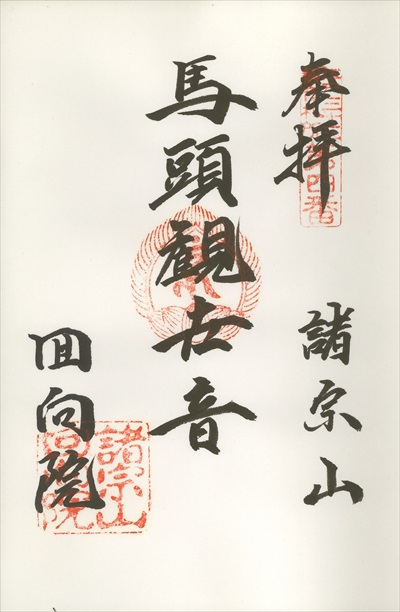 奉拝
諸宗山
馬頭観世音
回向院
諸宗山
回向院